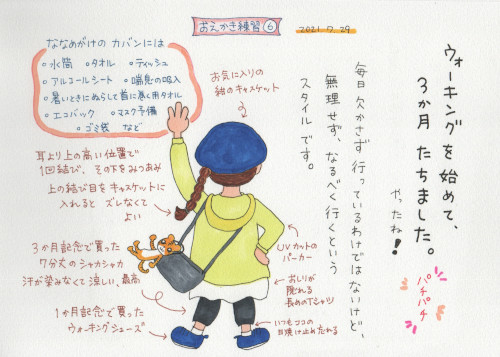 おえかき練習⑥
2021.7.29
ウォーキングを始めて、
3か月 たちました。
やったね!
パチパチ
毎日 欠かさず 行っているわけではないけど、
無理せず、なるべく行くという
スタイルです。
ななめがけの カバンには
○水筒 ○タオル ○ティッシュ
○アルコールシート ○喘息の吸入
○暑いときにぬらして首に巻く用タオル
○エコバック ○マスク予備
○ゴミ袋 など
お気に入りの
紺のキャスケット
耳より上の高い位置で
1回結び、その下をみつあみ
上の結び目をキャスケットに
入れると ズレなくて
よい
3ヶ月記念で買った
7分丈のシャカシャカ
汗が染みなくて涼しい、最高
1か月記念で買った
ウォーキングシューズ
UVカットの
パーカー
おしりが
隠れる
長めのTシャツ
いつもココの
日焼け止め忘れる